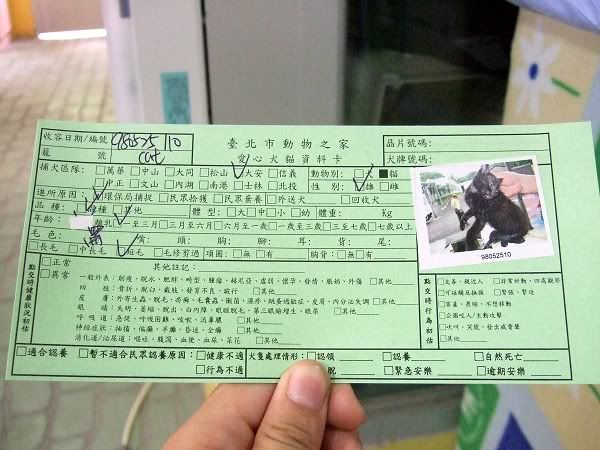 收容日期/編號 98525 110
臺北市動物之家
晶片號碼:
籠 號 cat
愛心犬貓資料卡
犬牌號碼:
捕犬區隊: □萬華 □中山 □大同 □松山 □大安 □信義 動物別: □犬 ■貓
□中正 □文山 □內湖 □南港 □士林 □北投 性 別: □雄 □雌
進所原因: □環保局捕捉 □民眾拾獲 □民眾棄養 □外送犬 □回收犬
品 種: 種 □其他 體 型: □大 □中 □小 □幼 體重: Kg
年齡: 離乳 □一至三月 □三至六月 □六月至一歲 □一至三歲 □三至七歲 □七歲以上
毛 色: 背: 頭: 胸: 腳: 耳: 背: 尾:
□長毛 □中長毛 短毛 □毛修剪過 項圈: □無 □有 胸背: □無 □有
98052510
點交時健康狀況初估
□正常
□異常
其他註記:
一般外表: 削瘦、脫水、肥胖、畸型、腫瘤、赫尼亞、虛弱、懷孕、發情、脹奶、外傷 □其他
四 肢: 骨折、脫臼、截肢、發育不良、跛行 □其他
皮 膚: 外寄生蟲、脫毛、疥癬、毛囊蟲、黴菌、濕疹、跳蚤過敏症、皮屑、內分泌失調 □其他
眼 睛: 失明、萎縮、脫出、白內障、眼瞼脫毛、第三眼瞼增生、眼屎 □其他
呼 吸 道: 急促、呼吸困難、咳嗽、流鼻膿 □其他
神經症狀: 抽搐、偏癱、半癱、昏迷、全癱 □其他
消化道/泌尿道: 嘔吐、腹瀉、血便、血尿、菜花 □其他
點交時行為初估
□友善、親近人 □非常好動、四處觀察
□可接觸及撫摸 □緊張、緊迫
□害羞、畏縮、不想移動
□企圖咬人/主動攻擊
□吠叫、哭號、發出威脅聲
□其他
□適合認養 □暫不適合民眾認養原因: □健康不適 犬隻處理情形: □認領 □認養 □自然死亡
□行為不適 脫 □緊急安樂 □逾期安樂